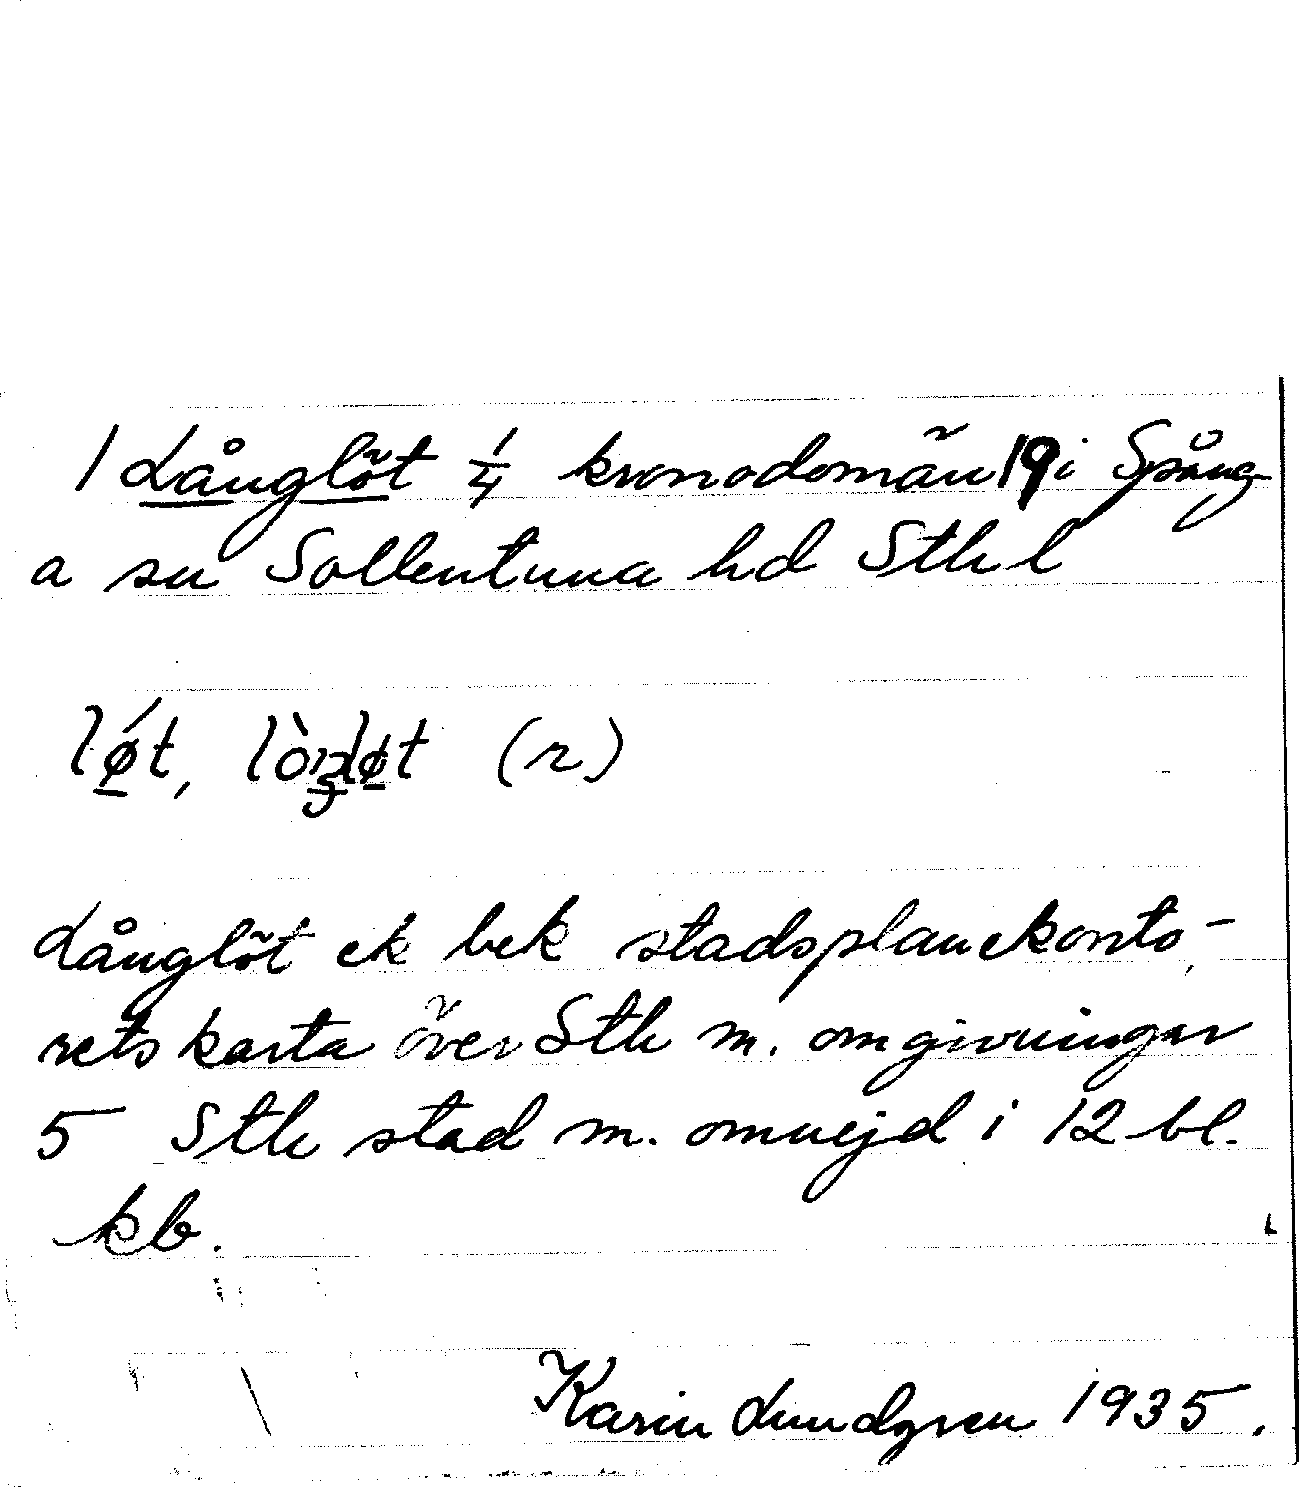 1 Långlöt 1/4 kronodomän 19 i Spång
a sn Sollentuna hd Sth l
lǿ̱t, lòŋlø̱t (r)
Långlöt ek bek stadsplanekonto-
rets karta över Sth m. omgivningar
5 Sth stad m. omnejd i 12 bl.
kb.
Karin Lundgren 1935.